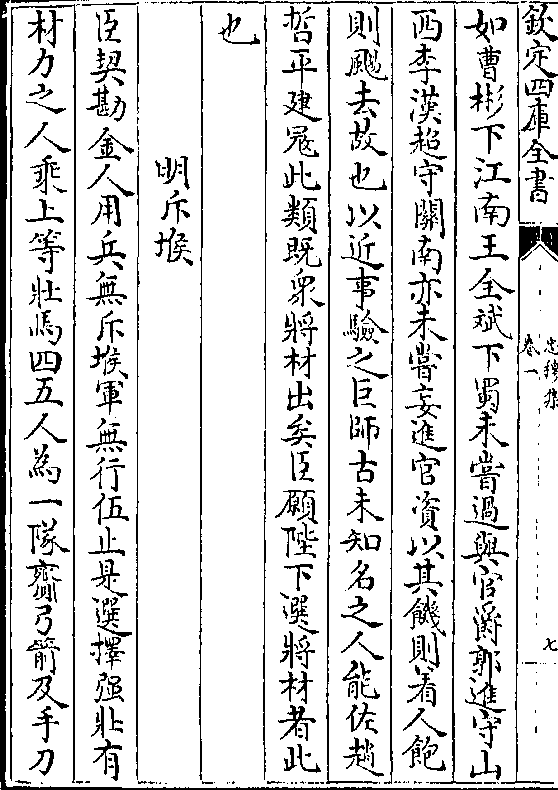 欽定四庫全書
忠穆集
卷一
七
如曹彬下江南王全斌下蜀未嘗過與官爵郭進守山
西李漢超守關南亦未嘗妄進官資以其饑則着人飽
則颺去故也以近事驗之巨師古未知名之人能佐趙
哲平建冦此類既衆將材出矣臣願陛下選將材者此
也
明斥堠
臣契勘金人用兵無斥堠軍無行伍止是選擇强壯有
材力之人乘上等壯馬四五人為一隊齎弓箭及手刀